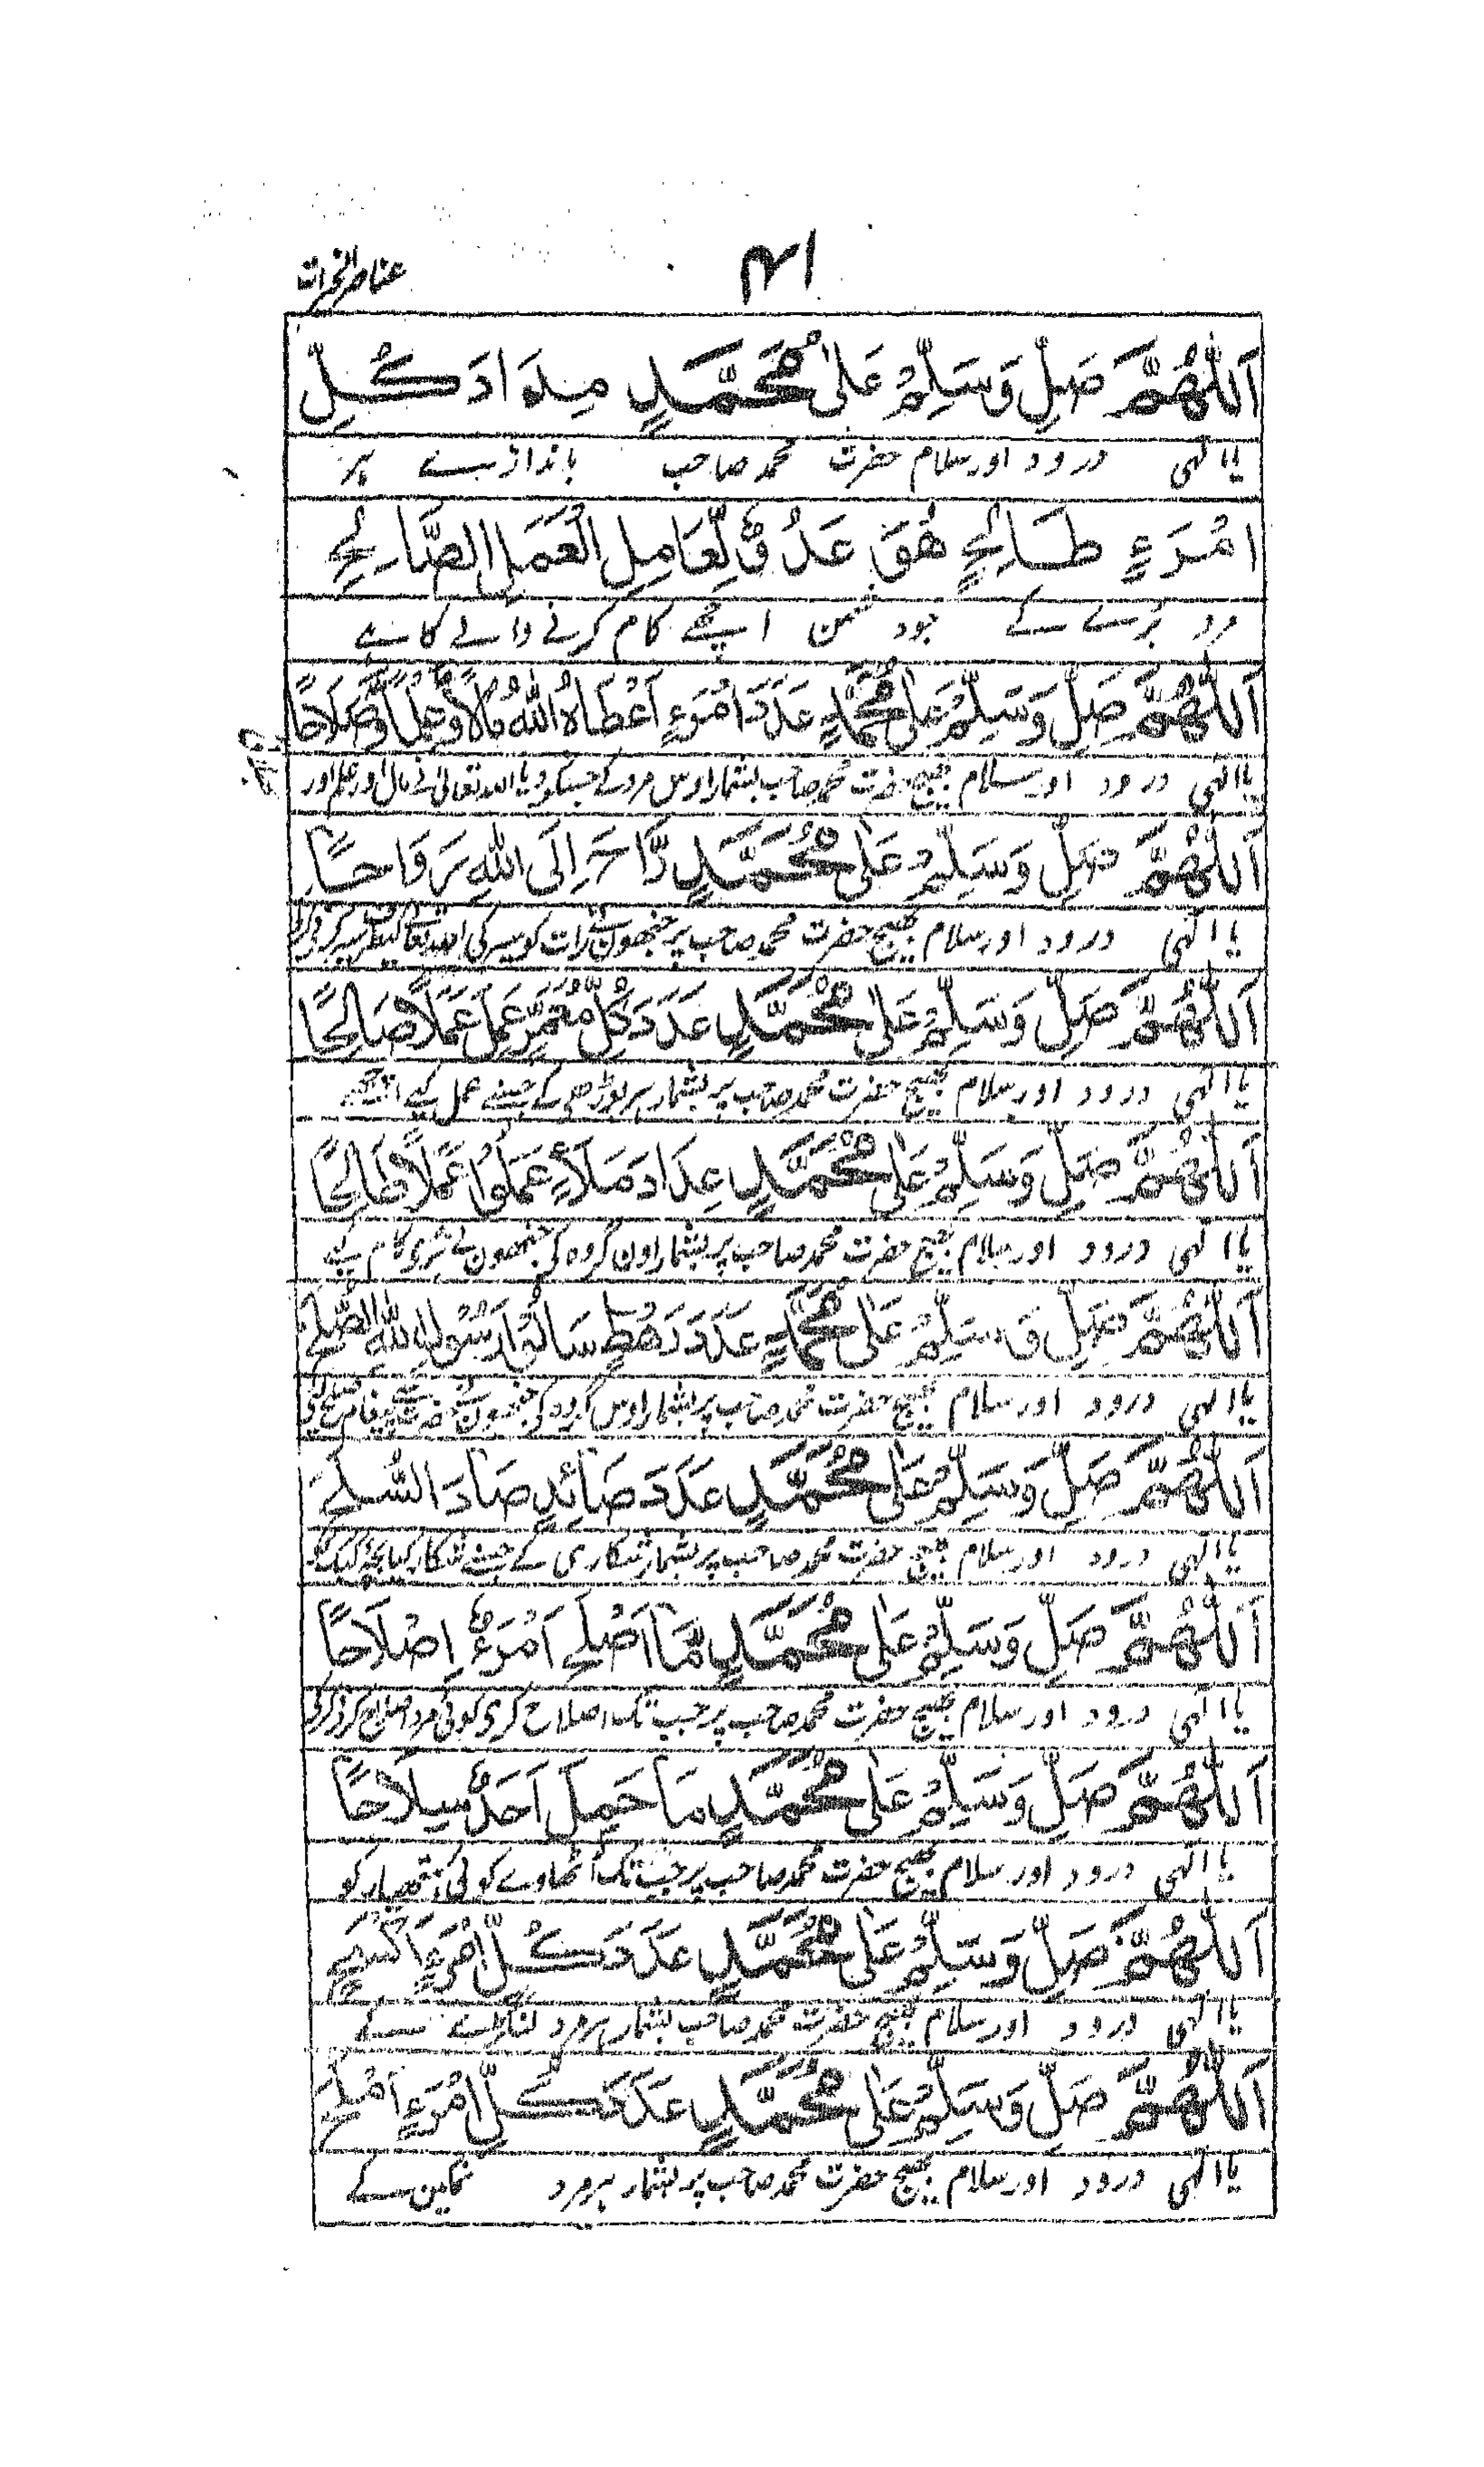 ۱۴۱
عناصر الخیرات
اَللّٰهُمَّ صَلِّ وَسَلِّمْ عَلٰى مُحَمَّدٍ مِدَادَ كُلِّ
یا الٰہی درود اور سلام حضرت محمد صاحب باندازے ہر
امْرَءٍ طَالِحٍ هُوَ عَدُوٌّ لِّعَامِلِ الْعَمَلِ الصَّالِحِ
مرد بُرے کے جو دشمن اچھے کام کرنے والے کا ہے
اَللّٰهُمَّ صَلِّ وَسَلِّمْ عَلٰى مُحَمَّدٍ عَدَدَ امْرَءٍ اَعْطَاهُ اللّٰهُ مَالًا وَّعِلْمًا وَّصَلَاحًا
یا الٰہی درود اور سلام بھیج حضرت محمد صاحب بشمار اوس مرد کے جسکو دیا اللہ تعالیٰ نے مال اور علم اور
اَللّٰهُمَّ صَلِّ وَسَلِّمْ عَلٰى مُحَمَّدٍ رَّاحَ اِلَى اللّٰهِ رَوَاحًا
یا الٰہی درود اور سلام بھیج حضرت محمد صاحب پر جنھوں نے رات کو سیر کی اللہ تعالیٰ کیطرف سیر کرنی
اَللّٰهُمَّ صَلِّ وَسَلِّمْ عَلٰى مُحَمَّدٍ عَدَدَ كُلِّ مُعَمَّرٍ عَمِلَ عَمَلًا صَالِحًا
یا الٰہی درود اور سلام بھیج حضرت محمد صاحب پر بشمار ہر بوڑھے کے جسنے عمل کیے اچھے
اَللّٰهُمَّ صَلِّ وَسَلِّمْ عَلٰى مُحَمَّدٍ عِدَادَ مَلَاءٍ عَمِلُوْا عَمَلًا طَالِحًا
یا الٰہی درود اور سلام بھیج حضرت محمد صاحب پر بشمار اون گروہ کی جنھوں نے بُری کام کیے
اَللّٰهُمَّ صَلِّ وَسَلِّمْ عَلٰى مُحَمَّدٍ عَدَدَ رَهْطٍ سَالُوْا رَسُوْلَ اللّٰهِ الصُّلْحَ
یا الٰہی درود اور سلام بھیج حضرت محمد صاحب پر بشمار اوس گروہ کی جنھوں نے حضرت سے پیغام صلح
اَللّٰهُمَّ صَلِّ وَسَلِّمْ عَلٰى مُحَمَّدٍ عَدَدَ صَائِدٍ صَادَ السُّلَحَ
یا الٰہی درود اور سلام بھیج حضرت محمد صاحب پر بشمار شکاری کے جسنے شکار کیا بچۂ کبک
اَللّٰهُمَّ صَلِّ وَسَلِّمْ عَلٰى مُحَمَّدٍ مَّا اَصْلَحَ امْرَءٌ اِصْلَاحًا
یا الٰہی درود اور سلام بھیج حضرت محمد صاحب پر جب تک اصلاح کری کوئی مرد اصلاح کرنی
اَللّٰهُمَّ صَلِّ وَسَلِّمْ عَلٰى مُحَمَّدٍ مَا حَمِلَ اَحَدٌ سِلَاحًا
یا الٰہی درود اور سلام بھیج حضرت محمد صاحب پر جب تک اُٹھاوے کوئی ہتھیار کو
اَللّٰهُمَّ صَلِّ وَسَلِّمْ عَلٰى مُحَمَّدٍ عَدَدَ كُلِّ امْرَءٍ اَكْسَحَ
یا الٰہی درود اور سلام بھیج حضرت محمد صاحب بشمار ہر مرد لنگڑے کے
اَللّٰهُمَّ صَلِّ وَسَلِّمْ عَلٰى مُحَمَّدٍ عَدَدَ كُلِّ امْرَءٍ اَمْلَحَ
یا الٰہی درود اور سلام بھیج حضرت محمد صاحب پر بشمار ہر مرد نمکین کے